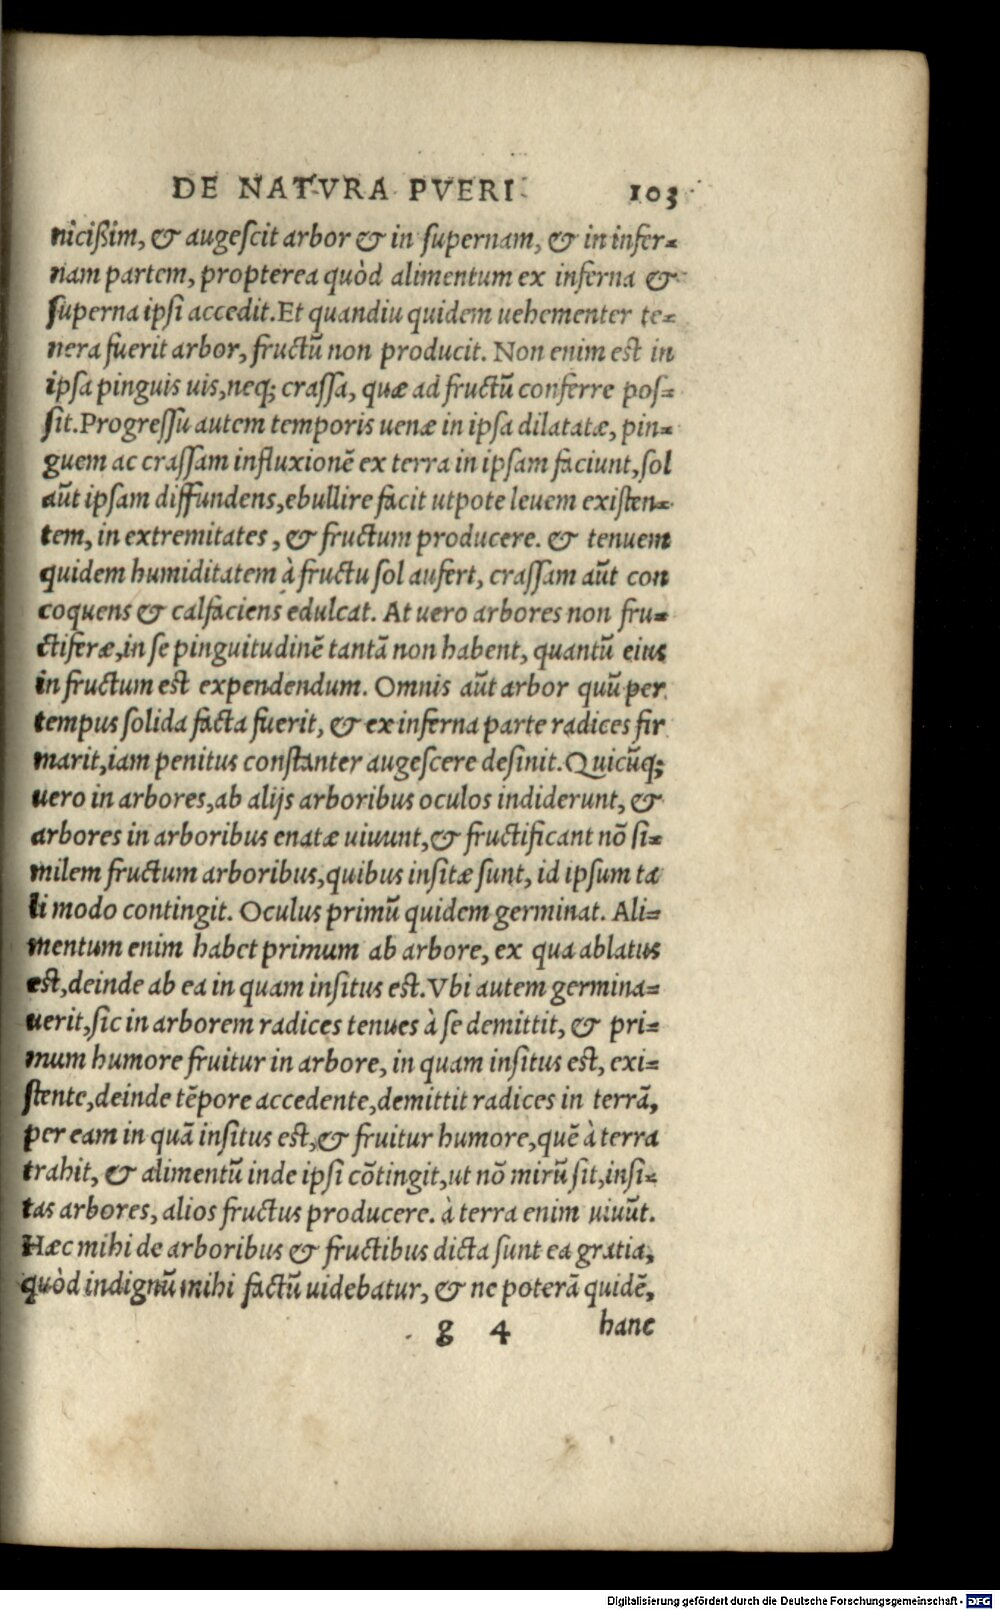 DE NATVRA PVERI 103
nicißim, & augescit arbor & in supernam, & in infer=
nam partem, propterea quòd alimentum ex inferna &
superna ipsi accedit. Et quandiu quidem uehementer te=
nera fuerit arbor, fructũ non producit. Non enim est in
ipsa pinguis uis, neq; crassa, quæ ad fructũ conferre pos=
sit. Progressu autem temporis uenæ in ipsa dilatatæ, pin=
guem ac crassam influxionẽ ex terra in ipsam faciunt, sol
aũt ipsam diffundens, ebullire facit utpote leuem existen=
tem, in extremitates, & fructum producere. & tenuem
quidem humiditatem à fructu sol aufert, crassam aũt con
coquens & calfaciens edulcat. At uero arbores non fru=
ctiferæ, in se pinguitudinẽ tantã non habent, quantũ eius
in fructum est expendendum. Omnis aũt arbor quũ per
tempus solida facta fuerit, & ex inferna parte radices fir
marit, iam penitus constanter augescere desinit. Quicũq;
uero in arbores, ab alijs arboribus oculos indiderunt, &
arbores in arboribus enatæ uiuunt, & fructificant nõ si=
milem fructum arboribus, quibus insitæ sunt, id ipsum ta
li modo contingit. Oculus primũ quidem germinat. Ali=
mentum enim habet primum ab arbore, ex qua ablatus
est, deinde ab ea in quam insitus est. Vbi autem germina=
uerit, sic in arborem radices tenues à se demittit, & pri=
mum humore fruitur in arbore, in quam insitus est, exi=
stente, deinde tẽpore accedente, demittit radices in terrã,
per eam in quã insitus est, & fruitur humore, quẽ à terra
trahit, & alimentũ inde ipsi cõtingit, ut nõ mirũ sit, insi=
tas arbores, alios fructus producere. à terra enim uiuũt.
Hæc mihi de arboribus & fructibus dicta sunt ea gratia,
quòd indignũ mihi factũ uidebatur, & ne poterã quidẽ,
g 4 hanc
Digitalisierung gefördert durch die Deutsche Forschungsgemeinschaft - DFG